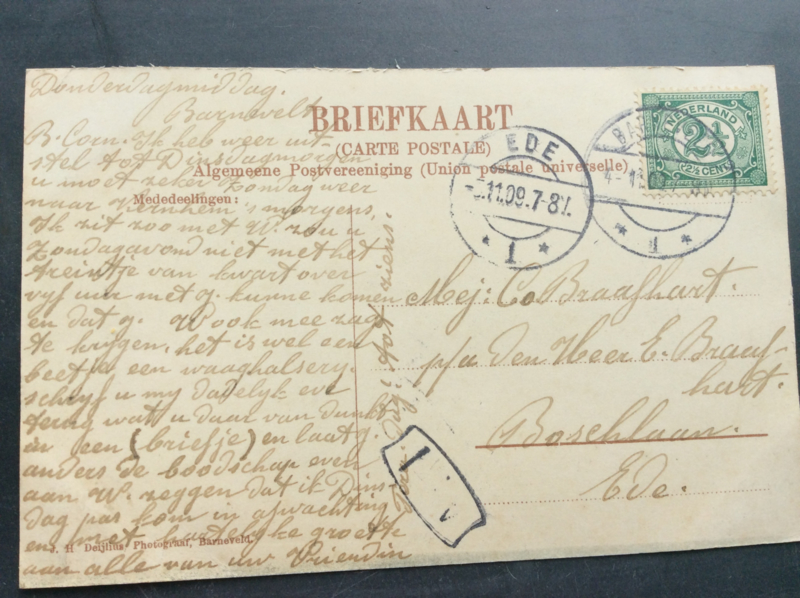 Donderdagmiddag.
Barneveld
B. Corn. Ik heb weer uit-
stel tot Dinsdagmorgen
u moet zeker Zondag weer
naar 's morgens,
Ik zit zoo met W. zou u
Zondagavond niet met het
treintje van kwart over
vyf uur met g. kunne komen
en dat g. W ook mee zag
te krygen, het is wel een
beetje een waaghalsery.
schryf u my dadelyk eve
terug wat u daar van dunkt
in een (briefje) en laat g.
anders de boodschap even
aan W. zeggen dat ik Dins-
dag pas kom in afwachting
en met hartelyke groete
aan alle van uw Vriendin
dag! tot ziens.
BRIEFKAART
(CARTE POSTALE)
Algemeene Postvereeniging (Union postale universelle)
Mededeelingen:
EDE
11.09.7-8V.
* 1 *
* 1 *
NEDERLAND
2½
(2½ CENT)
Mej: Co Braafhart.
p/a den Heer E. Braaf-
hart.
Boschlaan.
Ede.
1
J. H Deijlius Photograaf, Barneveld.